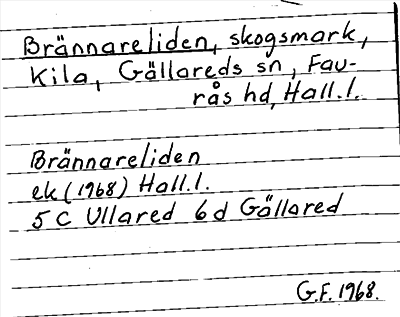 Brännareliden, skogsmark,
Kila, Gällareds sn, Fau-
rås hd, Hall.l.
Brännareliden
ek (1968) Hall.l.
5 C Ullared 6 d Gällared
G.F. 1968.